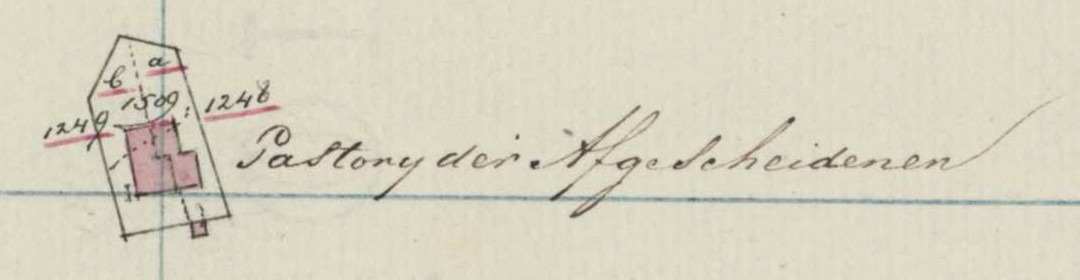 b a
1509
1249 1248
Pastory der Afgescheidenen